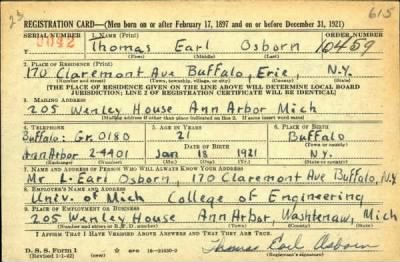 23
615
REGISTRATION CARD—(Men born on or after February 17, 1897 and on or before December 31, 1921)
SERIAL NUMBER 1. NAME (Print) ORDER NUMBER
Thomas Earl Osborn 10459
(First) (Middle) (Last)
2. PLACE OF RESIDENCE (Print)
170 Claremont Ave Buffalo, Erie, N.Y.
(Number and street) (Town, township, village, or city) (County) (State)
[THE PLACE OF RESIDENCE GIVEN ON THE LINE ABOVE WILL DETERMINE LOCAL BOARD
JURISDICTION; LINE 2 OF REGISTRATION CERTIFICATE WILL BE IDENTICAL]
3. MAILING ADDRESS
205 Wenley House Ann Arbor Mich
[Mailing address if other than place indicated on line 2. If same, insert word same]
4. TELEPHONE 5. AGE IN YEARS 6. PLACE OF BIRTH
Buffalo: Gr. 0180 21 Buffalo
DATE OF BIRTH
Ann Arbor 2-4401 Jan 18 1921 N.Y.
7. NAME AND ADDRESS OF PERSON WHO WILL ALWAYS KNOW YOUR ADDRESS
Mr L. Earl Osborn, 170 Claremont Ave Buffalo, N.Y
8. EMPLOYER'S NAME AND ADDRESS
Univ. of Mich College of Engineering
9. PLACE OF EMPLOYMENT OR BUSINESS
205 Wenley House Ann Arbor, Washtenaw, Mich
(Number and street or R. F. D. number) (Town) (County) (State)
I AFFIRM THAT I HAVE VERIFIED ABOVE ANSWERS AND THAT THEY ARE TRUE.
D. S. S. Form 1
(Revised 1-1-42)
Thomas Earl Osborn
(Registrant's signature)